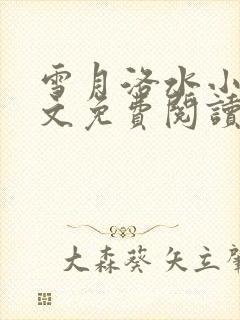 雪月洛水小
文免費閱讀
大森葵 矢立肇